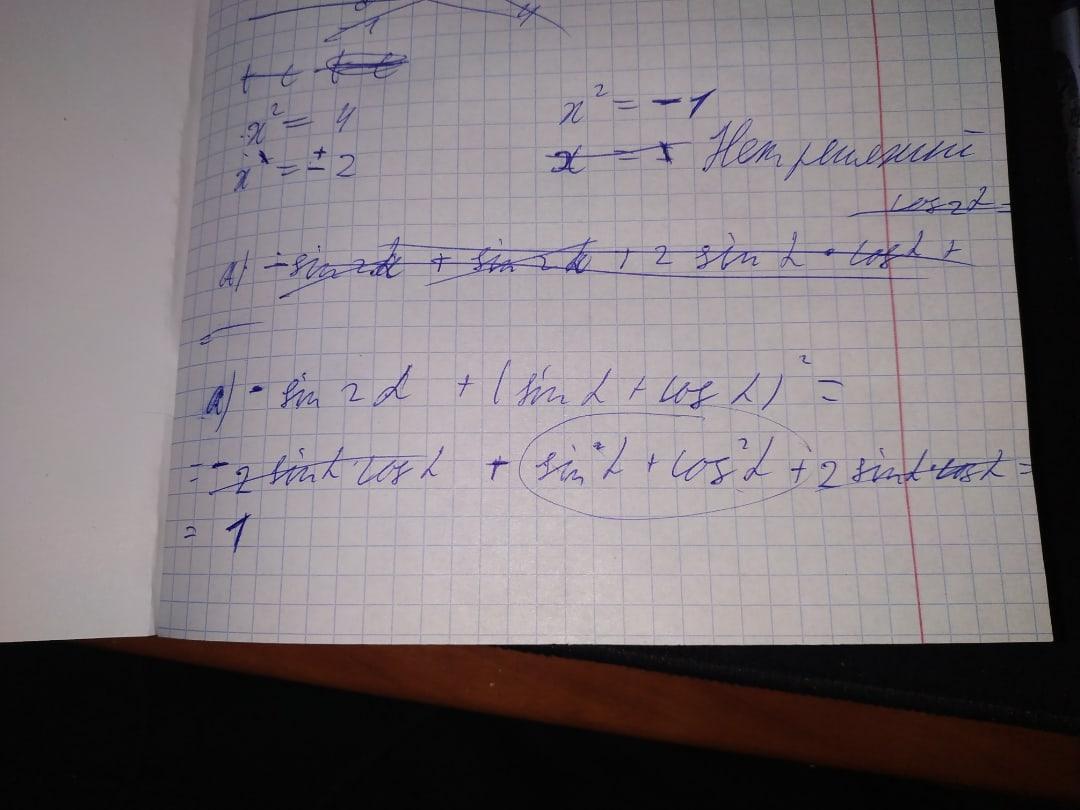 x² = 4
x² = -1
x = ±2
x = 1 Нет решений
cos2α =
а) -sin2α + sin2α + 2 sin α · cos α +
=
а) - sin 2α + (sin α + cos α)² =
= - 2 sinα cosα + sin²α + cos²α + 2 sinα·cosα =
= 1